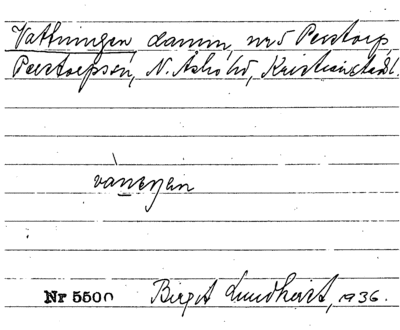 Vattningen damm, nr 5 Perstorp,
Perstorps sn, N. Åsbo hd, Kristianstads l.
vàneɳen
Nr 5500 Birgit Lundkvist, 1936.